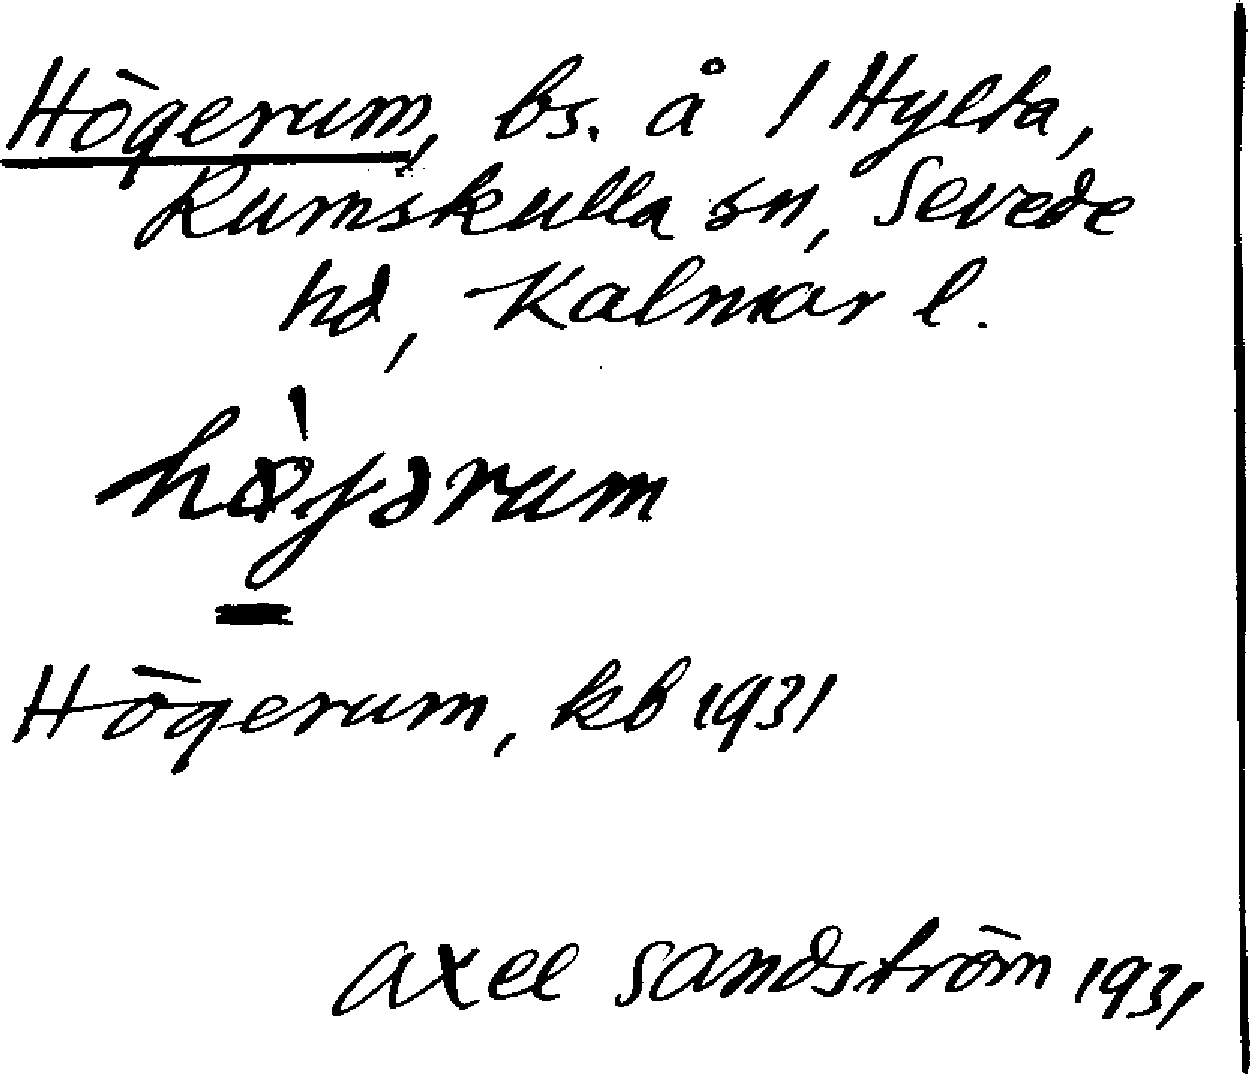 Högerum, bs. å 1 Hylta,
Rumskulla sn, Sevede
hd, Kalmar l.
hø̀jərum
Högerum, kb 1931
Axel Sandström 1931